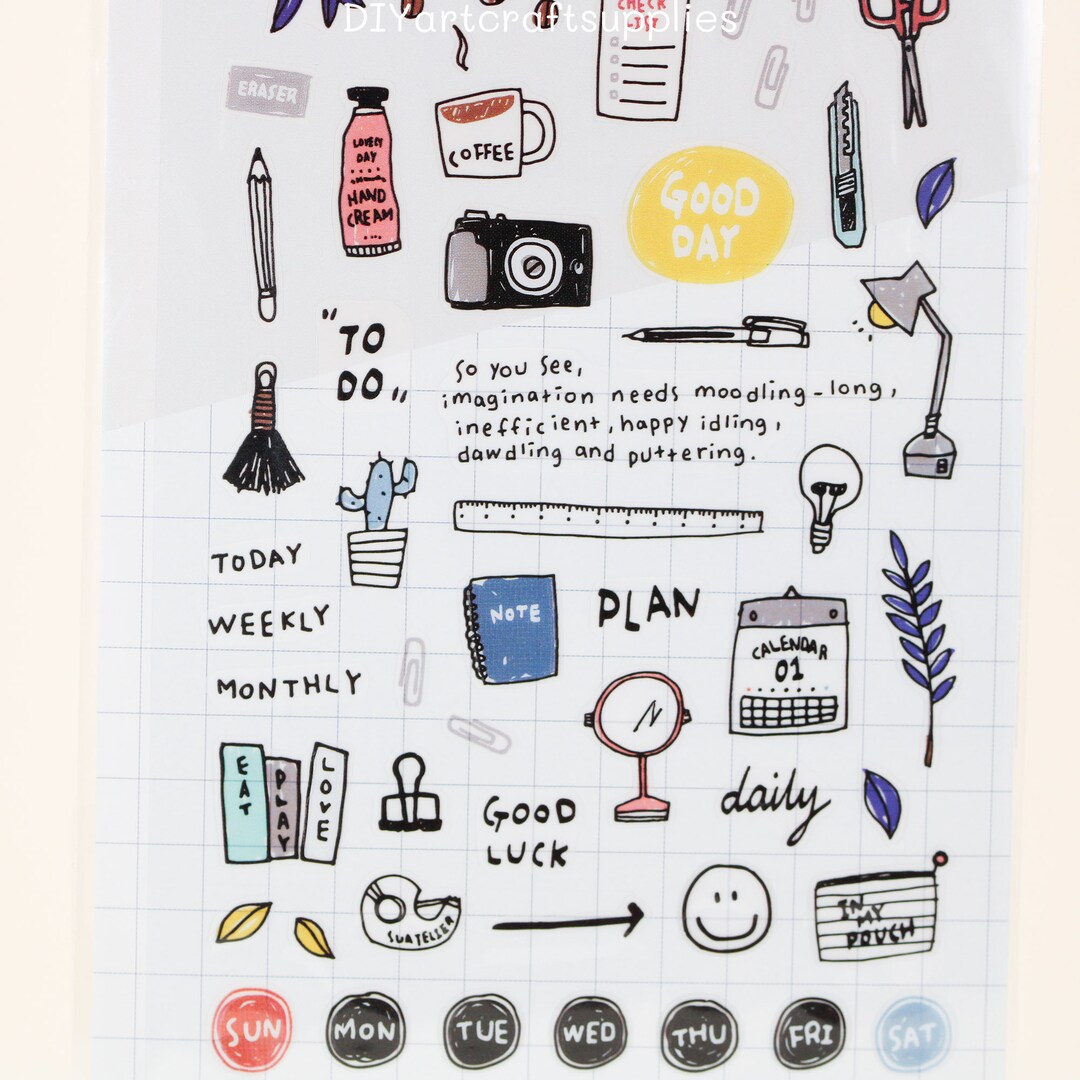 DIYartcraftsupplies
CHECK
LIST
ERASER
LOVELY
DAY
HAND
CREAM
COFFEE
GOOD
DAY
"TO
DO„
So you see,
imagination needs moodling-long,
inefficient, happy idling,
dawdling and puttering.
TODAY
WEEKLY
MONTHLY
NOTE
PLAN
CALENDAR
01
EAT
PLAY
LOVE
GOOD
LUCK
daily
SUATELIER
IN
MY
POUCH
SUN MON TUE WED THU FRI SAT